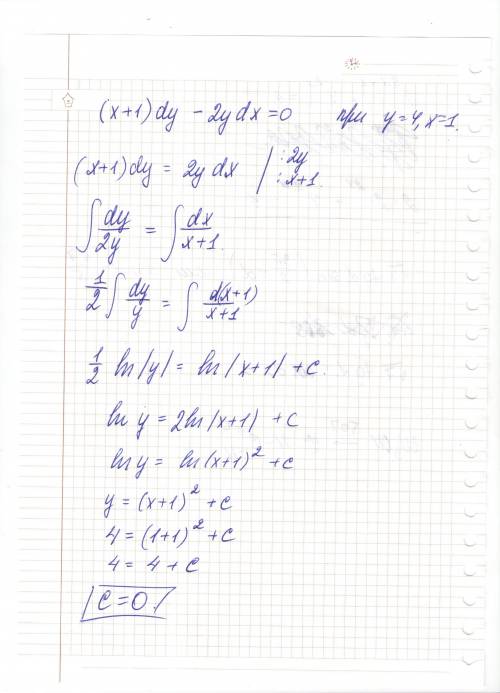 (x+1)dy - 2y dx = 0 при y=4, x=1.
(x+1)dy = 2y dx | :2y
:x+1.
∫ dy/2y = ∫ dx/x+1.
1/2 ∫ dy/y = ∫ d(x+1)/x+1
1/2 ln|y| = ln|x+1| + c.
ln y = 2ln|x+1| + c
ln y = ln(x+1)² + c
y = (x+1)² + c
4 = (1+1)² + c
4 = 4 + c
c = 0